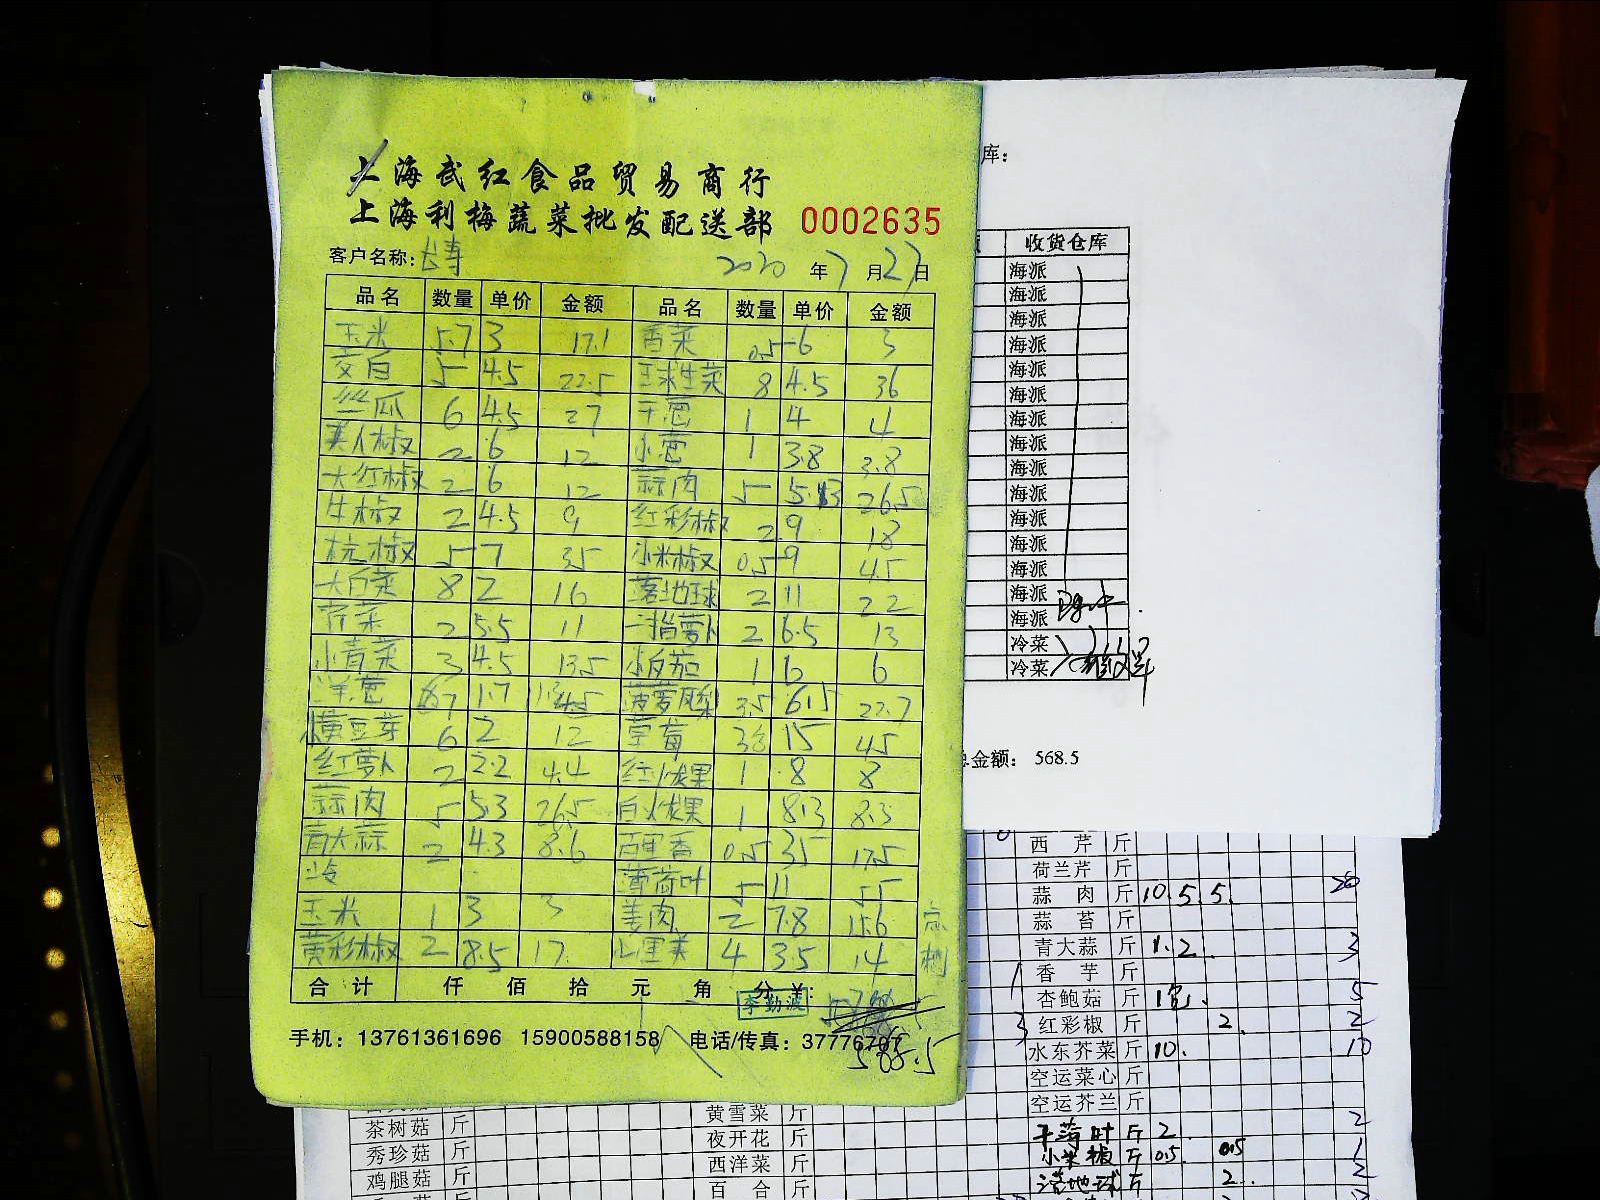 上海武红食品贸易商行
上海利梅蔬菜批发配送部 0002635
客户名称: 长寿 2020 年 7 月 27 日
品名 数量 单价 金额 品名 数量 单价 金额
玉米 5.7 3 17.1 香菜 0.5 6 3
茭白 5 4.5 22.5 玉球生菜 8 4.5 36
丝瓜 6 4.5 27 干葱 1 4 4
美人椒 2 6 12 小葱 1 3.8 3.8
大红椒 2 6 12 蒜肉 5 5.3 26.5
牛椒 2 4.5 9 红彩椒 2 9 18
杭椒 5 7 35 小米椒 0.5 9 4.5
大白菜 8 2 16 落地球 2 11 22
芹菜 2 5.5 11 手指萝卜 2 6.5 13
小青菜 3 4.5 13.5 1 6 6
洋葱 7 1.7 菠萝凤梨 3.5 6.5 22.7
黄豆芽 6 2 12 草莓 3 15 45
红萝卜 2 2.2 4.4 红火龙果 1 8 8
蒜肉 5 5.3 26.5 白火龙果 1 8.3 8.3
青大蒜 2 4.3 8.6 百里香 0.5 35 17.5
冷 薄荷叶 5 11 55
玉米 1 3 3 姜肉 2 7.8 15.6 点
黄彩椒 2 8.5 17 心里美 4 3.5 14
合计 仟 佰 拾 元 角 分 ¥:
李勤波
568.5
手机: 13761361696 15900588158 电话/传真: 37776707
库:
收货仓库
海派
海派
海派
海派
海派
海派
海派
海派
海派
海派
海派
海派
海派
海派
海派
冷菜
冷菜
总金额: 568.5
西芹 斤
荷兰芹 斤
蒜肉 斤 10. 5. 5. 20
蒜苔 斤
青大蒜 斤 1. 2. 3
香芋 斤
杏鲍菇 斤 5
红彩椒 斤 2. 2
水东芥菜 斤 10. 10
空运菜心 斤
空运芥兰 斤
干荷叶 斤 2. 2
小米椒 斤 0.5. 0.5 1
落地球 斤 2. 2
茶树菇 斤
秀珍菇 斤
鸡腿菇 斤
黄雪菜 斤
夜开花 斤
西洋菜 斤
百合 斤